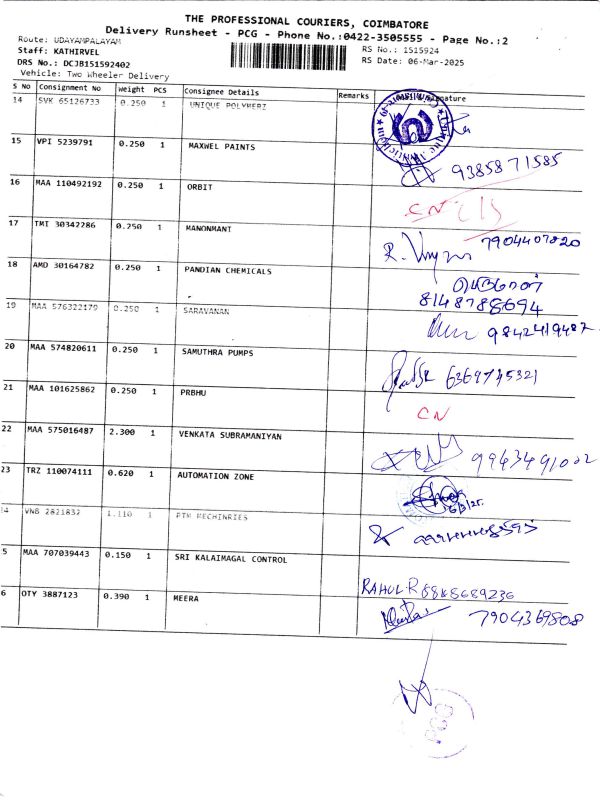 THE PROFESSIONAL COURIERS, COIMBATORE
Delivery Runsheet - PCG - Phone No.:0422-3505555 - Page No.:2
Route: UDAYAMPALAYAM
RS No.: 1515924
Staff: KATHIRVEL
DRS No.: DCJB151592402
RS Date: 06-Mar-2025
Vehicle: Two Wheeler Delivery
S No Consignment No Weight PCS Consignee Details Remarks Signature
14 SVK 65126733 0.250 1 UNIQUE POLYMERI
15 VPI 5239791 0.250 1 MAXWEL PAINTS 9385871585
16 MAA 110492192 0.250 1 ORBIT CN
17 TMT 30342286 0.250 1 MANONMANT 7904407820
18 AMD 30164782 0.250 1 PANDIAN CHEMICALS
8148788694
19 MAA 576322179 0.250 1 SARAVANAN 9842419487
20 MAA 574820611 0.250 1 SAMUTHRA PUMPS 6369745321
21 MAA 101625862 0.250 1 PRBHU CN
22 MAA 575016487 2.300 1 VENKATA SUBRAMANIYAN 9963491002
23 TRZ 110074111 0.620 1 AUTOMATION ZONE 6/3/25
4 VNB 2821832 1.110 1 PTM MECHINRIES
5 MAA 707039443 0.150 1 SRI KALAIMAGAL CONTROL
RAHUL R 8848689236
6 OTY 3887123 0.390 1 MEERA 7904369808
PCG